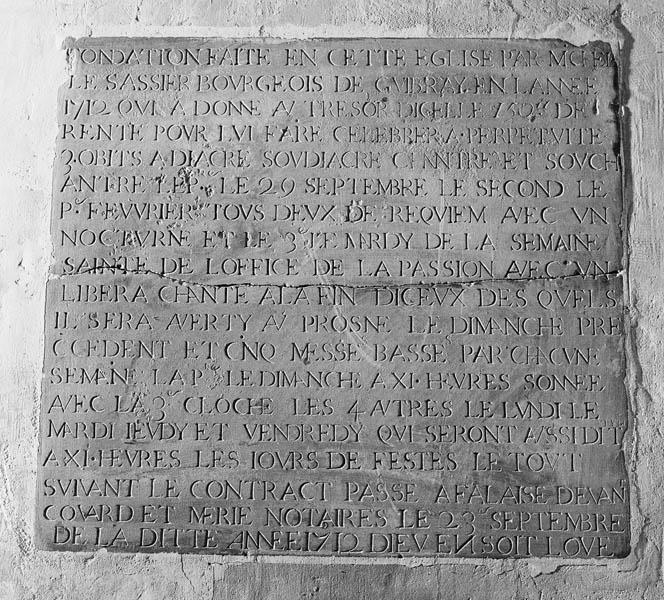 FONDATION FAITE EN CETTE EGLISE PAR MC
LE SASSIER BOVRGEOIS DE GVIBRAY EN LANNEE
1712 QVI A DONNE AV TRESOR DICELLE DE
RENTE POVR LVI FAIRE CELEBBRER A PERPETVITE
3 OBITS A DIACRE SOVDIACRE CHANTRE ET SOVCH
ANTRE LE P. LE 29 SEPTEMBRE LE SECOND LE
P. FEVVRIER TOVS DEVX DE REQVIEM AVEC VN
NOCTVRNE ET LE 3E LE MARDY DE LA SEMAINE
SAINTE DE LOFFICE DE LA PASSION AVEC VN
LIBERA CHANTE A LA FIN DICEVX DES QVELS
IL SERA AVERTY AV PROSNE LE DIMANCHE PRE
CCEDENT ET CINQ MESSE BASSE PAR CHACVNE
SEMAINE LA P. LE DIMANCHE A XI HEVRES SONNEE
AVEC LA 3E CLOCHE LES 4 AVTRES LE LVNDI LE
MARDI IEVDY ET VENDREDY QVI SERONT AVSSI DIT
A XI HEVRES LES IOVRS DE FESTES LE TOVT
SVIVANT LE CONTRACT PASSE A FALAISE DEVAN
COVARD ET MERIE NOTAIRES LE 23 SEPTEMBRE
DE LA DITTE ANNEE 1712 DIEV EN SOIT LOVE